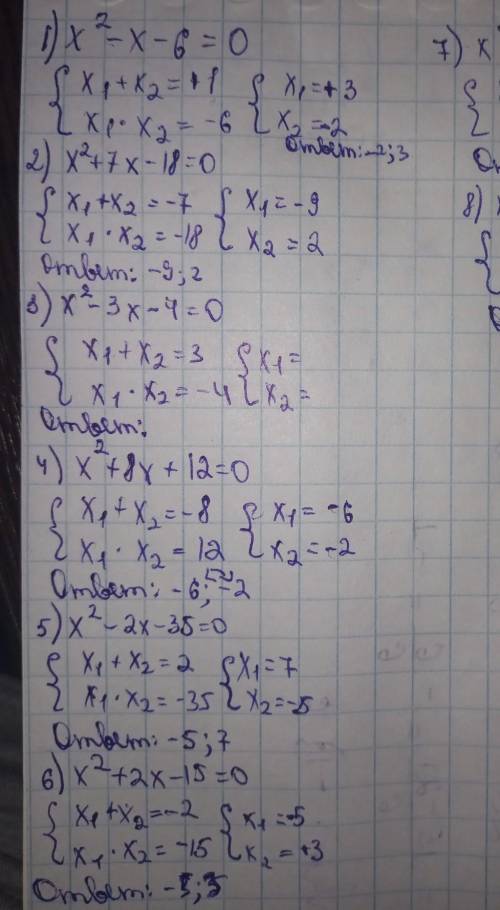 1) x² - x - 6 = 0
{ x₁ + x₂ = +1 { x₁ = +3
{ x₁ · x₂ = -6 { x₂ = -2
Ответ: -2; 3
2) x² + 7x - 18 = 0
{ x₁ + x₂ = -7 { x₁ = -9
{ x₁ · x₂ = -18 { x₂ = 2
Ответ: -9; 2
3) x² - 3x - 4 = 0
{ x₁ + x₂ = 3 { x₁ =
{ x₁ · x₂ = -4 { x₂ =
Ответ:
4) x² + 8x + 12 = 0
{ x₁ + x₂ = -8 { x₁ = -6
{ x₁ · x₂ = 12 { x₂ = -2
Ответ: -6; -2
5) x² - 2x - 35 = 0
{ x₁ + x₂ = 2 { x₁ = 7
{ x₁ · x₂ = -35 { x₂ = -5
Ответ: -5; 7
6) x² + 2x - 15 = 0
{ x₁ + x₂ = -2 { x₁ = -5
{ x₁ · x₂ = -15 { x₂ = +3
Ответ:
7) x
{
От
8)
{